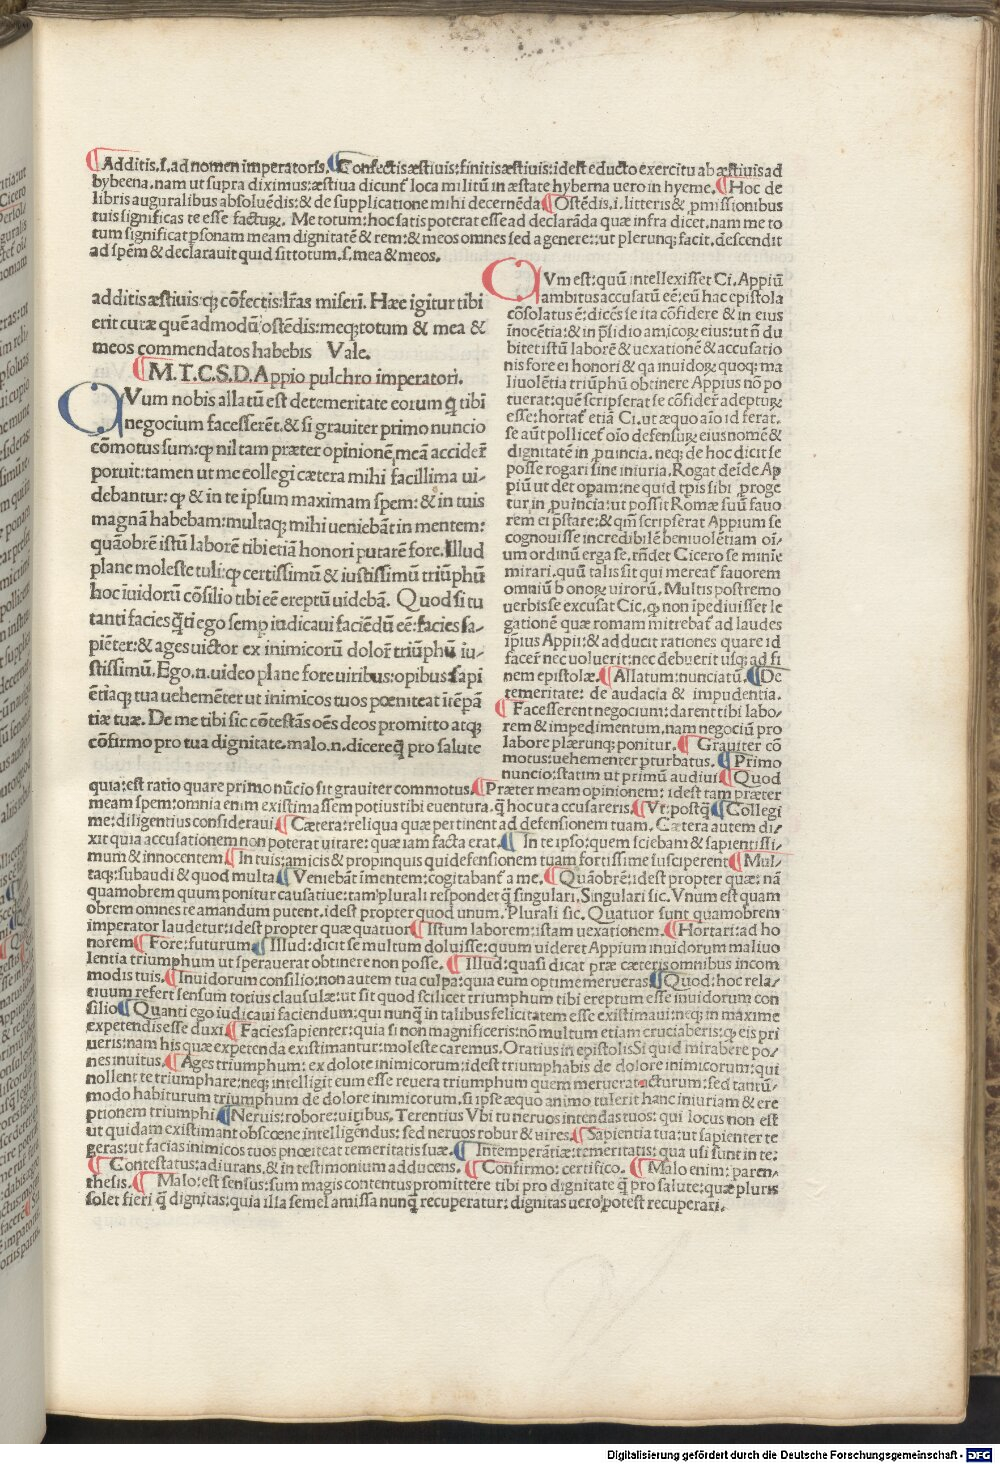 Additis.s.ad nomen imperatoris. Confectis æstiuis:finitis æstiuis:idest educto exercitu ab æstiuis ad
hybeena.nam ut supra diximus:æstiua dicunt̃ loca militũ in æstate hyberna uero in hyeme. Hoc de
libris auguralibus absoluẽdis:& de supplicatione mihi decernẽda Ostẽdis.i.litteris & ꝓmissionibus
tuis significas te esse facturꝝ. Me totum:hoc satis poterat esse ad declarãda quæ infra dicet.nam me to
tum significat ꝑsonam meam dignitatẽ & rem:& meos omnes sed a genere::ut plerunqꝫ facit.descendit
ad spẽm & declarauit quid sit totum.s.mea & meos.
additis æstiuis qꝫ cõfectis:lr̃as miserĩ. Hæe igitur tibi
erit curæ quẽadmodũ ostẽdis:meqꝫ totum & mea &
meos commendatos habebis Vale.
M.T.C.S.D.Appio pulchro imperatori.
QVum nobis allatũ est de temeritate eorum q̃ tibi
negocium facesserẽt.& si grauiter primo nuncio
cõmotus sum:ꝙ nil tam præter opinionẽ meã accider̃
poruit:tamen ut me collegi cætera mihi facillima ui-
debantur: ꝙ & in te ipsum maximam spem: & in tuis
magnã habebam:multaqꝫ mihi ueniebãt in mentem:
quãobrẽ istũ laborẽ tibi etiã honori putarẽ fore. Illud
plane moleste tuli:ꝙ certissimũ & iustissimũ triũphũ
hoc ĩuidorũ cõsilio tibi eẽ ereptũ uidebã. Quod si tu
tanti facies q̃ti ego semꝑ iudicaui faciẽdũ eẽ:facies sa-
piẽter:& ages uictor ex inimicorũ dolor̃ triũphũ iu-
stissimũ. Ego.n.uideo plane fore uiribus:opibus:sapi
ẽtiaqꝫ tua uehemẽter ut inimicos tuos pœniteat ĩtẽpã
tiæ tuæ. De me tibi sic cõtestãs oẽs deos promitto atqꝫ
cõfirmo pro tua dignitate.malo.n.dicereq̃ pro salute
QVm est:quũ intellexisset Ci.Appiũ
ambitus accusatũ eẽ:eũ hac epistola
cõsolatus ẽ:dicẽs se ita cõfidere & in eius
ĩnocẽtia:& in p̃sidio amicoꝝ eius:ut ñ du
bitet istũ laborẽ & uexationẽ & accusatio
nis fore ei honori & qa inuidoꝝ quoqꝫ ma
liuolẽtia triũphũ obtinere Appius nõ po
tuerat:quẽ scripserat se cõfider̃ adepturꝝ
esse:hortat̃ etiã Ci.ut æquo aĩo id ferat.
se aũt pollicet̃ oĩo defensurꝝ eius nomẽ &
dignitatẽ in ꝓuincia.neqꝫ de hoc dicit se
posse rogari sine iniuria. Rogat deĩde Ap
piũ ut det oꝑam:ne quid tꝑis sibi ꝓroge
tur in ꝓuincia:ut possit Romæ suũ fauo
rem ei p̃stare:& qm̃ scripserat Appium se
cognouisse incredibilẽ beniuolẽtiam oĩ-
um ordinũ erga se.rñdet Cicero se minĩe
mirari.quũ talis sit qui mereat̃ fauorem
omniũ bonoꝝ uiroruʒ. Multis postremo
uerbis se excusat Cic.ꝙ non ĩpediuisset le
gationẽ quæ romam mitrebat̃ ad laudes
ip̃ius Appii:& adducit rationes quare id
facer̃ nec uoluerit:nec debuerit usqꝫ ad fi
nem epistolæ. Allatum:nunciatũ. De
temeritate: de audacia & impudentia.
Facesserent negocium:darent tibi labo-
rem & impedimentum.nam negociũ pro
labore plærunqꝫ ponitur. Grauiter cõ
motus:uehementer ꝑturbatus. Primo
nuncio:statim ut primũ audiui Quod
quia:est ratio quare primo nũcio sit grauiter commotus. Præter meam opinionem: idest tam præter
meam spem:omnia enim existimassem potius tibi euentura.q̃ hoc ut accusareris. Vt:postq̃ Collegi
me:diligentius consideraui Cætera:reliqua quæ pertinent ad defensionem tuam. Cætera autem di-
xit quia accusationem non poterat uitare: quæ iam facta erat. In te ipso:quem sciebam & sapientissi-
mum & innocentem In tuis:amicis & propinquis qui defensionem tuam fortissime susciperent Mul-
taqꝫ:subaudi & quod multa Veniebãt ĩmentem:cogitabant̃ a me. Quãobrẽ:idest propter quæ: nã
quamobrem quum ponitur causatiue:tam plurali respondet q̃ singulari. Singulari sic. Vnum est quam
obrem omnes te amandum putent.idest propter quod unum. Plurali sic. Quatuor sunt quamobrem
imperator laudetur:idest propter quæ quatuor Istum laborem:istam uexationem. Hortari:ad ho
norem Fore:futurum Illud:dicit se multum doluisse:quum uideret Appium inuidorum maliuo
lentia triumphum ut sperauerat obtinere non posse. Illud:quasi dicat præ cæteris omnibus incom
modis tuis. Inuidorum consilio:non autem tua culpa:quia eum optime merueras: Quod:hoc rela-
tiuum refert sensum totius clausulæ:ut sit quod scilicet triumphum tibi ereptum esse inuidorum con
silio Quanti ego iudicaui faciendum:qui nunq̃ in talibus felicitatem esse existimaui:neqꝫ in maxime
expetendis esse duxi Facies sapienter:quia si non magnificeris:nõ multum etiam cruciaberis:ꝙ eis pri
ueris:nam his quæ expetenda existimantur:moleste caremus. Oratius in epistolis Si quid mirabere po-
nes inuitus. Ages triumphum: ex dolote inimicorum:idest triumphabis de dolore inimicorum:qui
nollent te triumphare:neqꝫ intelligit eum esse reuera triumphum quem meruerat acturum:sed tantũ-
modo habiturum triumphum de dolore inimicorum.si ipse æquo animo tulerit hanc iniuriam & ere
ptionem triumphi Neruis:robore:uiribus. Terentius Vbi tu neruos intendas tuos: qui locus non est
ut quidam existimant obscœne intelligẽdus: sed neruos robur & uires. Sapientia tua:ut sapienter te
geras:ut facias inimicos tuos pnœiteat temeritatis suæ. Intemperãtiæ:temeritatis: qua usi sunt in te:
Contestatus:adiurans.& in testimonium adducens. Confirmo: certifico. Malo enim: paren-
thesis. Malo:est sensus:sum magis contentus promittere tibi pro dignitate q̃ pro salute:quæ pluris
solet fieri q̃ dignitas:quia illa semel amissa nunq̃ recuperatur: dignitas uero potest recuperari.
Digitalisierung gefördert durch die Deutsche Forschungsgemeinschaft - DFG